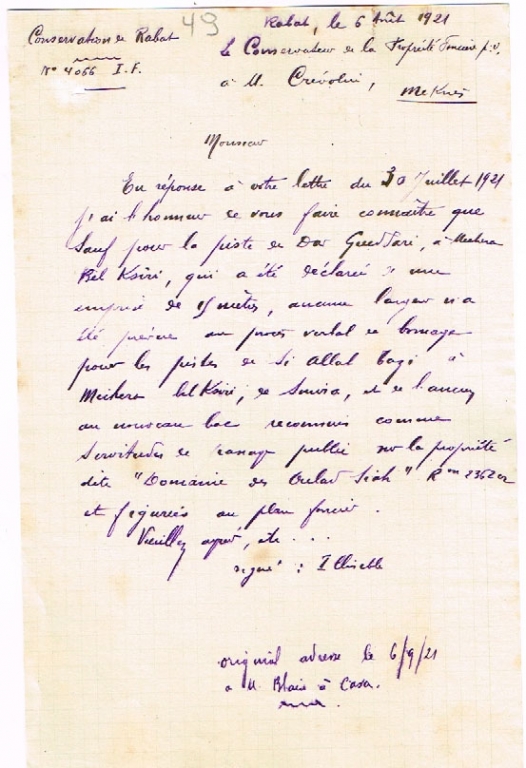 49
Rabat, le 6 Août 1921
Conservation de Rabat
N° 4066 I.F.
Le Conservateur de la Propriété Foncière p.i.,
à M. Crévolin,
Meknès
Monsieur
En réponse à votre lettre du 30 Juillet 1921
j'ai l'honneur de vous faire connaître que
sauf pour la piste de Dar Gueddari, à Mechra
Bel Ksiri, qui a été déclarée une
emprise de 15 mètres, aucune largeur n'a
été prévue au procès verbal de bornage
pour les pistes de Si Allal Tazi à
Mechra bel Ksiri, de Smira, et de l'ancien
au nouveau bac reconnues comme
servitudes de passage public sur la propriété
dite "Domaine des Oulad Siah" R on 2362 cr
et figurées au plan foncier.
Veuillez agréer, etc...
signé : Illisible
original adressé le 6/9/21
à M. Blaise à Casa.